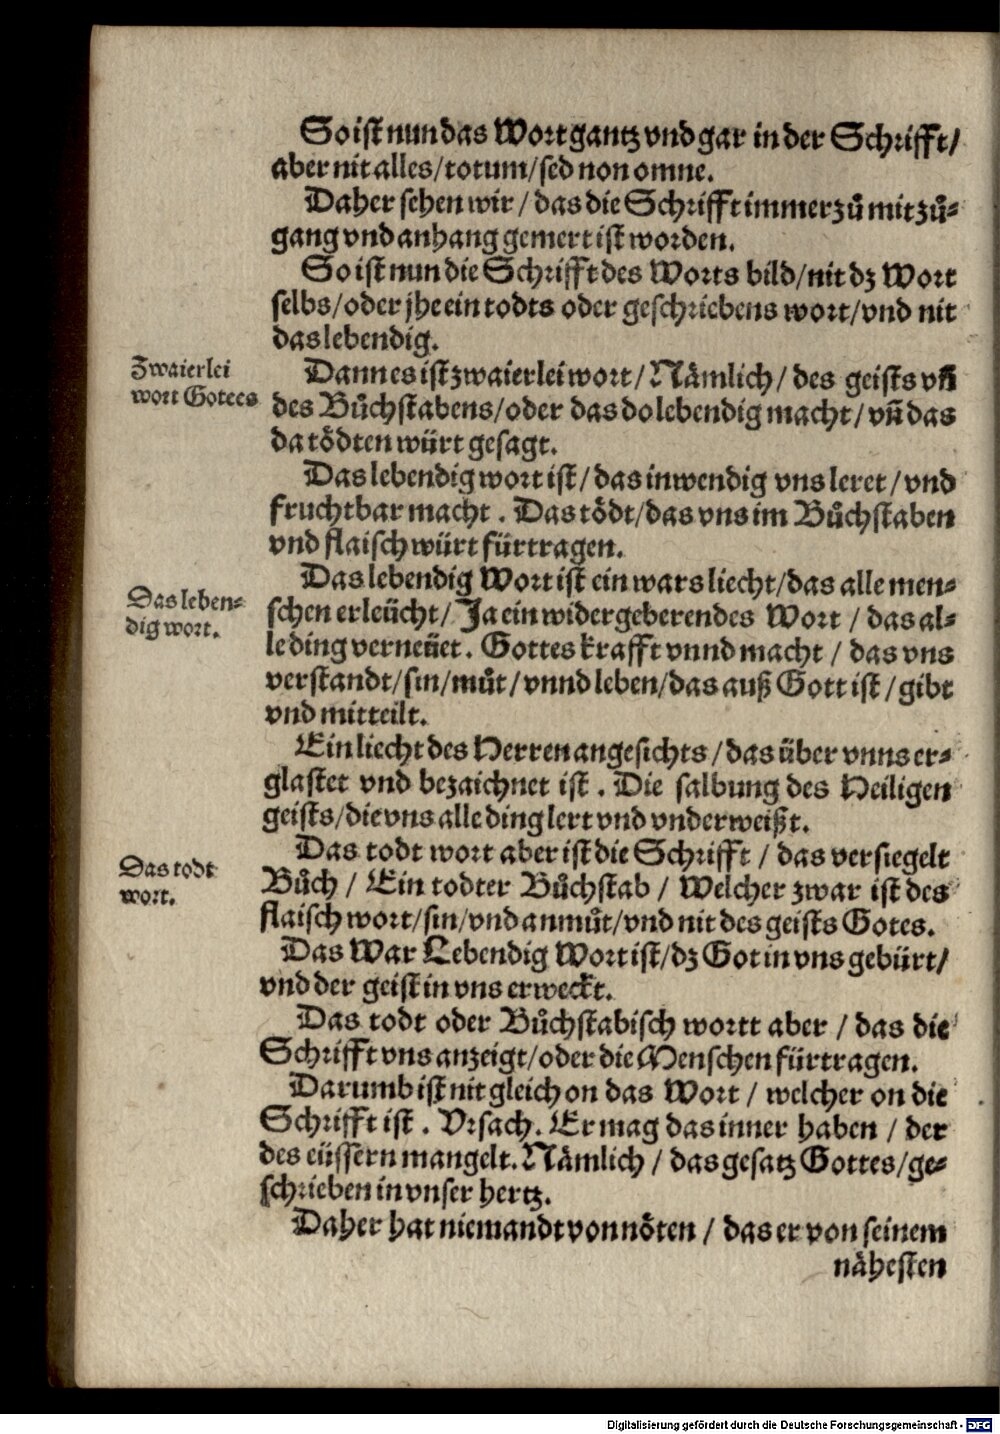 So ist nun das Wort gantz vnd gar in der Schrifft/
aber nit alles/totum/sed non omne.
Daher sehen wir / das die Schrifft immerzů mit zů-
gang vnd anhang gemert ist worden.
So ist nun die Schrifft des Worts bild/nit dz Wort
selbs/oder jhe ein todts oder geschriebens wort/vnd nit
das lebendig.
Zwaierlei
wort Gottes
Dann es ist zwaierlei wort/ Nämlich/ des geists vñ
des Bůchstabens/oder das do lebendig macht/ vñ das
da tödten würt gesagt.
Das lebendig wort ist/ das inwendig vns leret/vnd
fruchtbar macht. Das tödt/das vns im Bůchstaben
vnd flaisch würt fürtragen.
Das leben-
dig wort.
Das lebendig Wort ist ein wars liecht/das alle men-
schen erleücht/ Ja ein widergeberendes Wort / das al-
le ding verneüet. Gottes krafft vnnd macht / das vns
verstandt/sin/můt/vnnd leben/das auß Gott ist/gibt
vnd mitteilt.
Ein liecht des Herren angesichts/das über vnns er-
glastet vnd bezaichnet ist. Die salbung des Heiligen
geists/die vns alle ding lert vnd vnderweißt.
Das todt
wort.
Das todt wort aber ist die Schrifft / das versiegelt
Bůch / Ein todter Bůchstab / Welcher zwar ist des
flaisch wort/sin/vnd anmůt/vnd nit des geists Gotes.
Das War Lebendig Wort ist/dz Got in vns gebürt/
vnd der geist in vns erweckt.
Das todt oder Bůchstabisch wortt aber / das die
Schrifft vns anzeigt/oder die Menschen fürtragen.
Darumb ist nit gleich on das Wort / welcher on die
Schrifft ist. Vrsach. Er mag das inner haben / der
des eüssern mangelt. Nämlich / das gesatz Gottes/ge-
schrieben in vnser hertz.
Daher hat niemandt von nöten / das er von seinem
nähesten
Digitalisierung gefördert durch die Deutsche Forschungsgemeinschaft - DFG